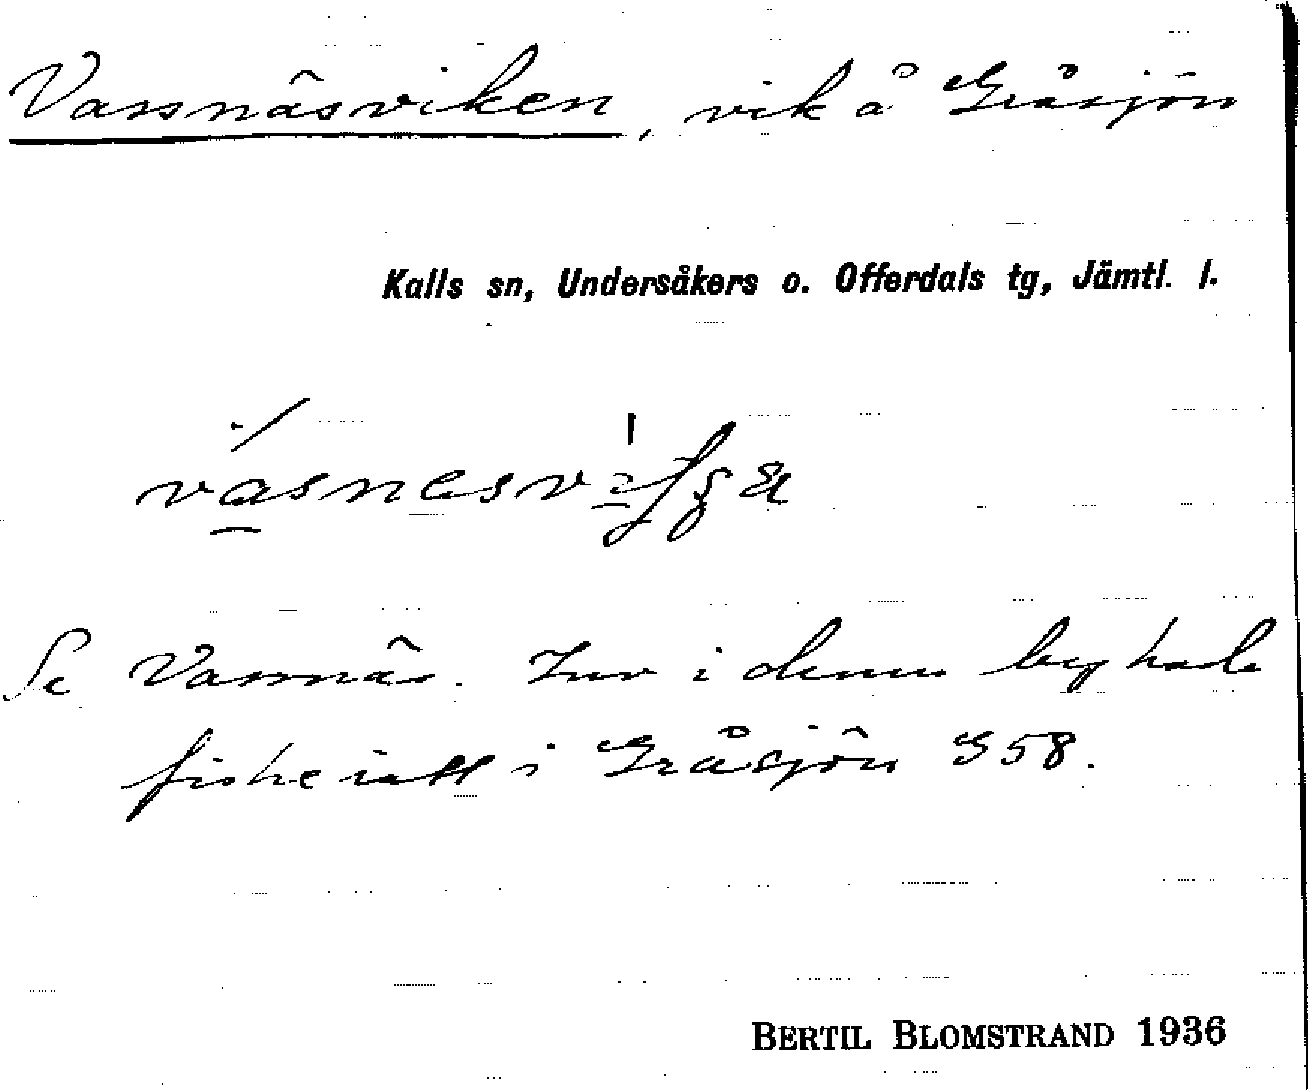 Vassnäsviken, vik å Gråsjön
Kalls sn, Undersåkers o. Offerdals tg, Jämtl. l.
Se Vassnäs. Inv i denna by hade
fiskerätt i Gråsjön G58.
BERTIL BLOMSTRAND 1936